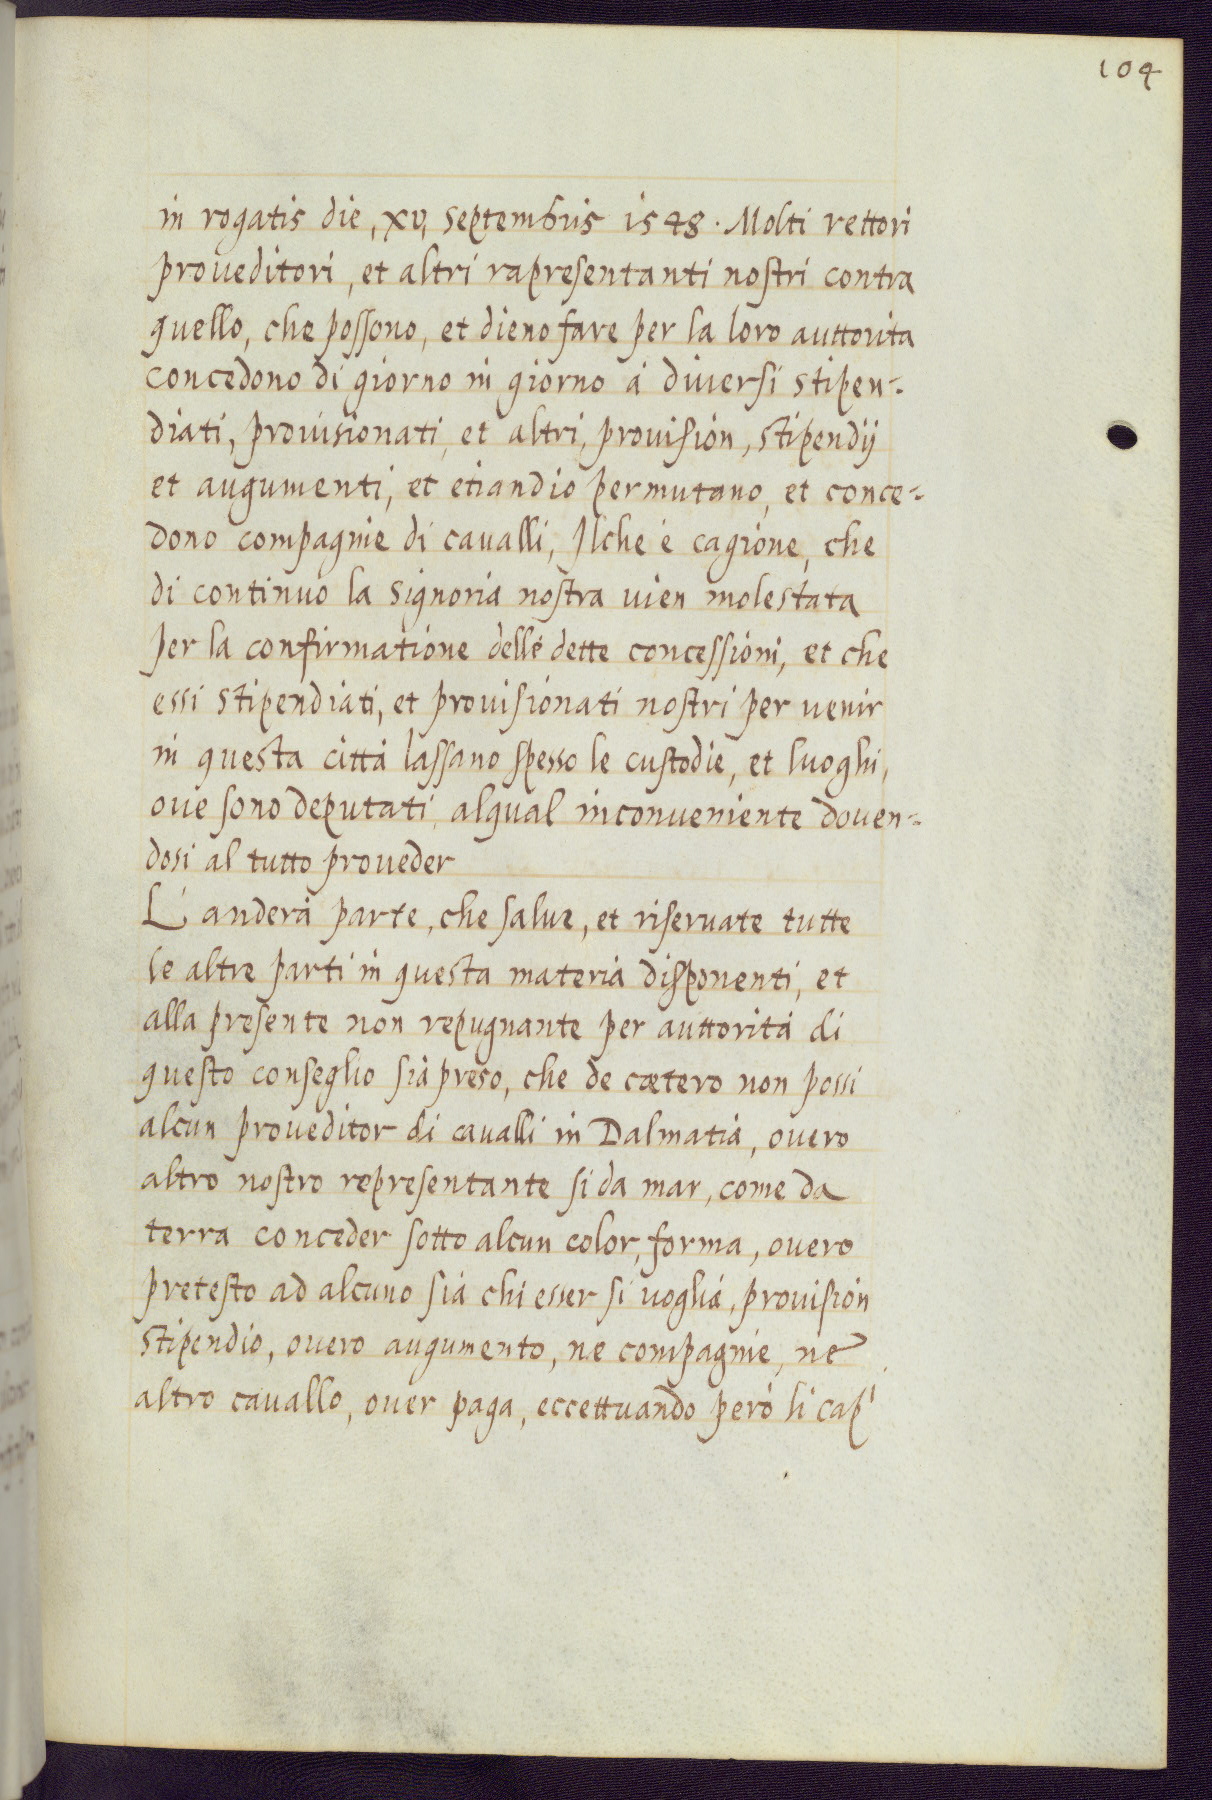 104
in rogatis die, xv, septembris 1548. Molti rettori
proveditori, et altri rapresentanti nostri contra
quello, che possono, et dieno fare per la loro auttorita
concedono di giorno in giorno à diversi stipen-
diati, provisionati, et altri, provision, stipendij
et augumenti, et etiandio permutano, et conce-
dono compagnie di cavalli, Ilche è cagione, che
di continuo la signoria nostra vien molestata
per la confirmatione delle dette concessioni, et che
essi stipendiati, et provisionati nostri per venir
in questa città lassano spesso le custodie, et luoghi,
ove sono deputati, alqual inconveniente doven-
dosi al tutto proveder
L'anderà parte, che salve, et riservate tutte
le altre parti in questa materia disponenti, et
alla presente non repugnante per auttorità di
questo conseglio sià preso, che de cœtero non possi
alcun proveditor di cavalli in Dalmatia, overo
altro nostro representante si da mar, come da
terra conceder sotto alcun color, forma, overo
pretesto ad alcuno sià chi esser si voglia, provision
stipendio, overo augumento, ne compagnie, ne
altro cavallo, over paga, eccettuando però li cap'